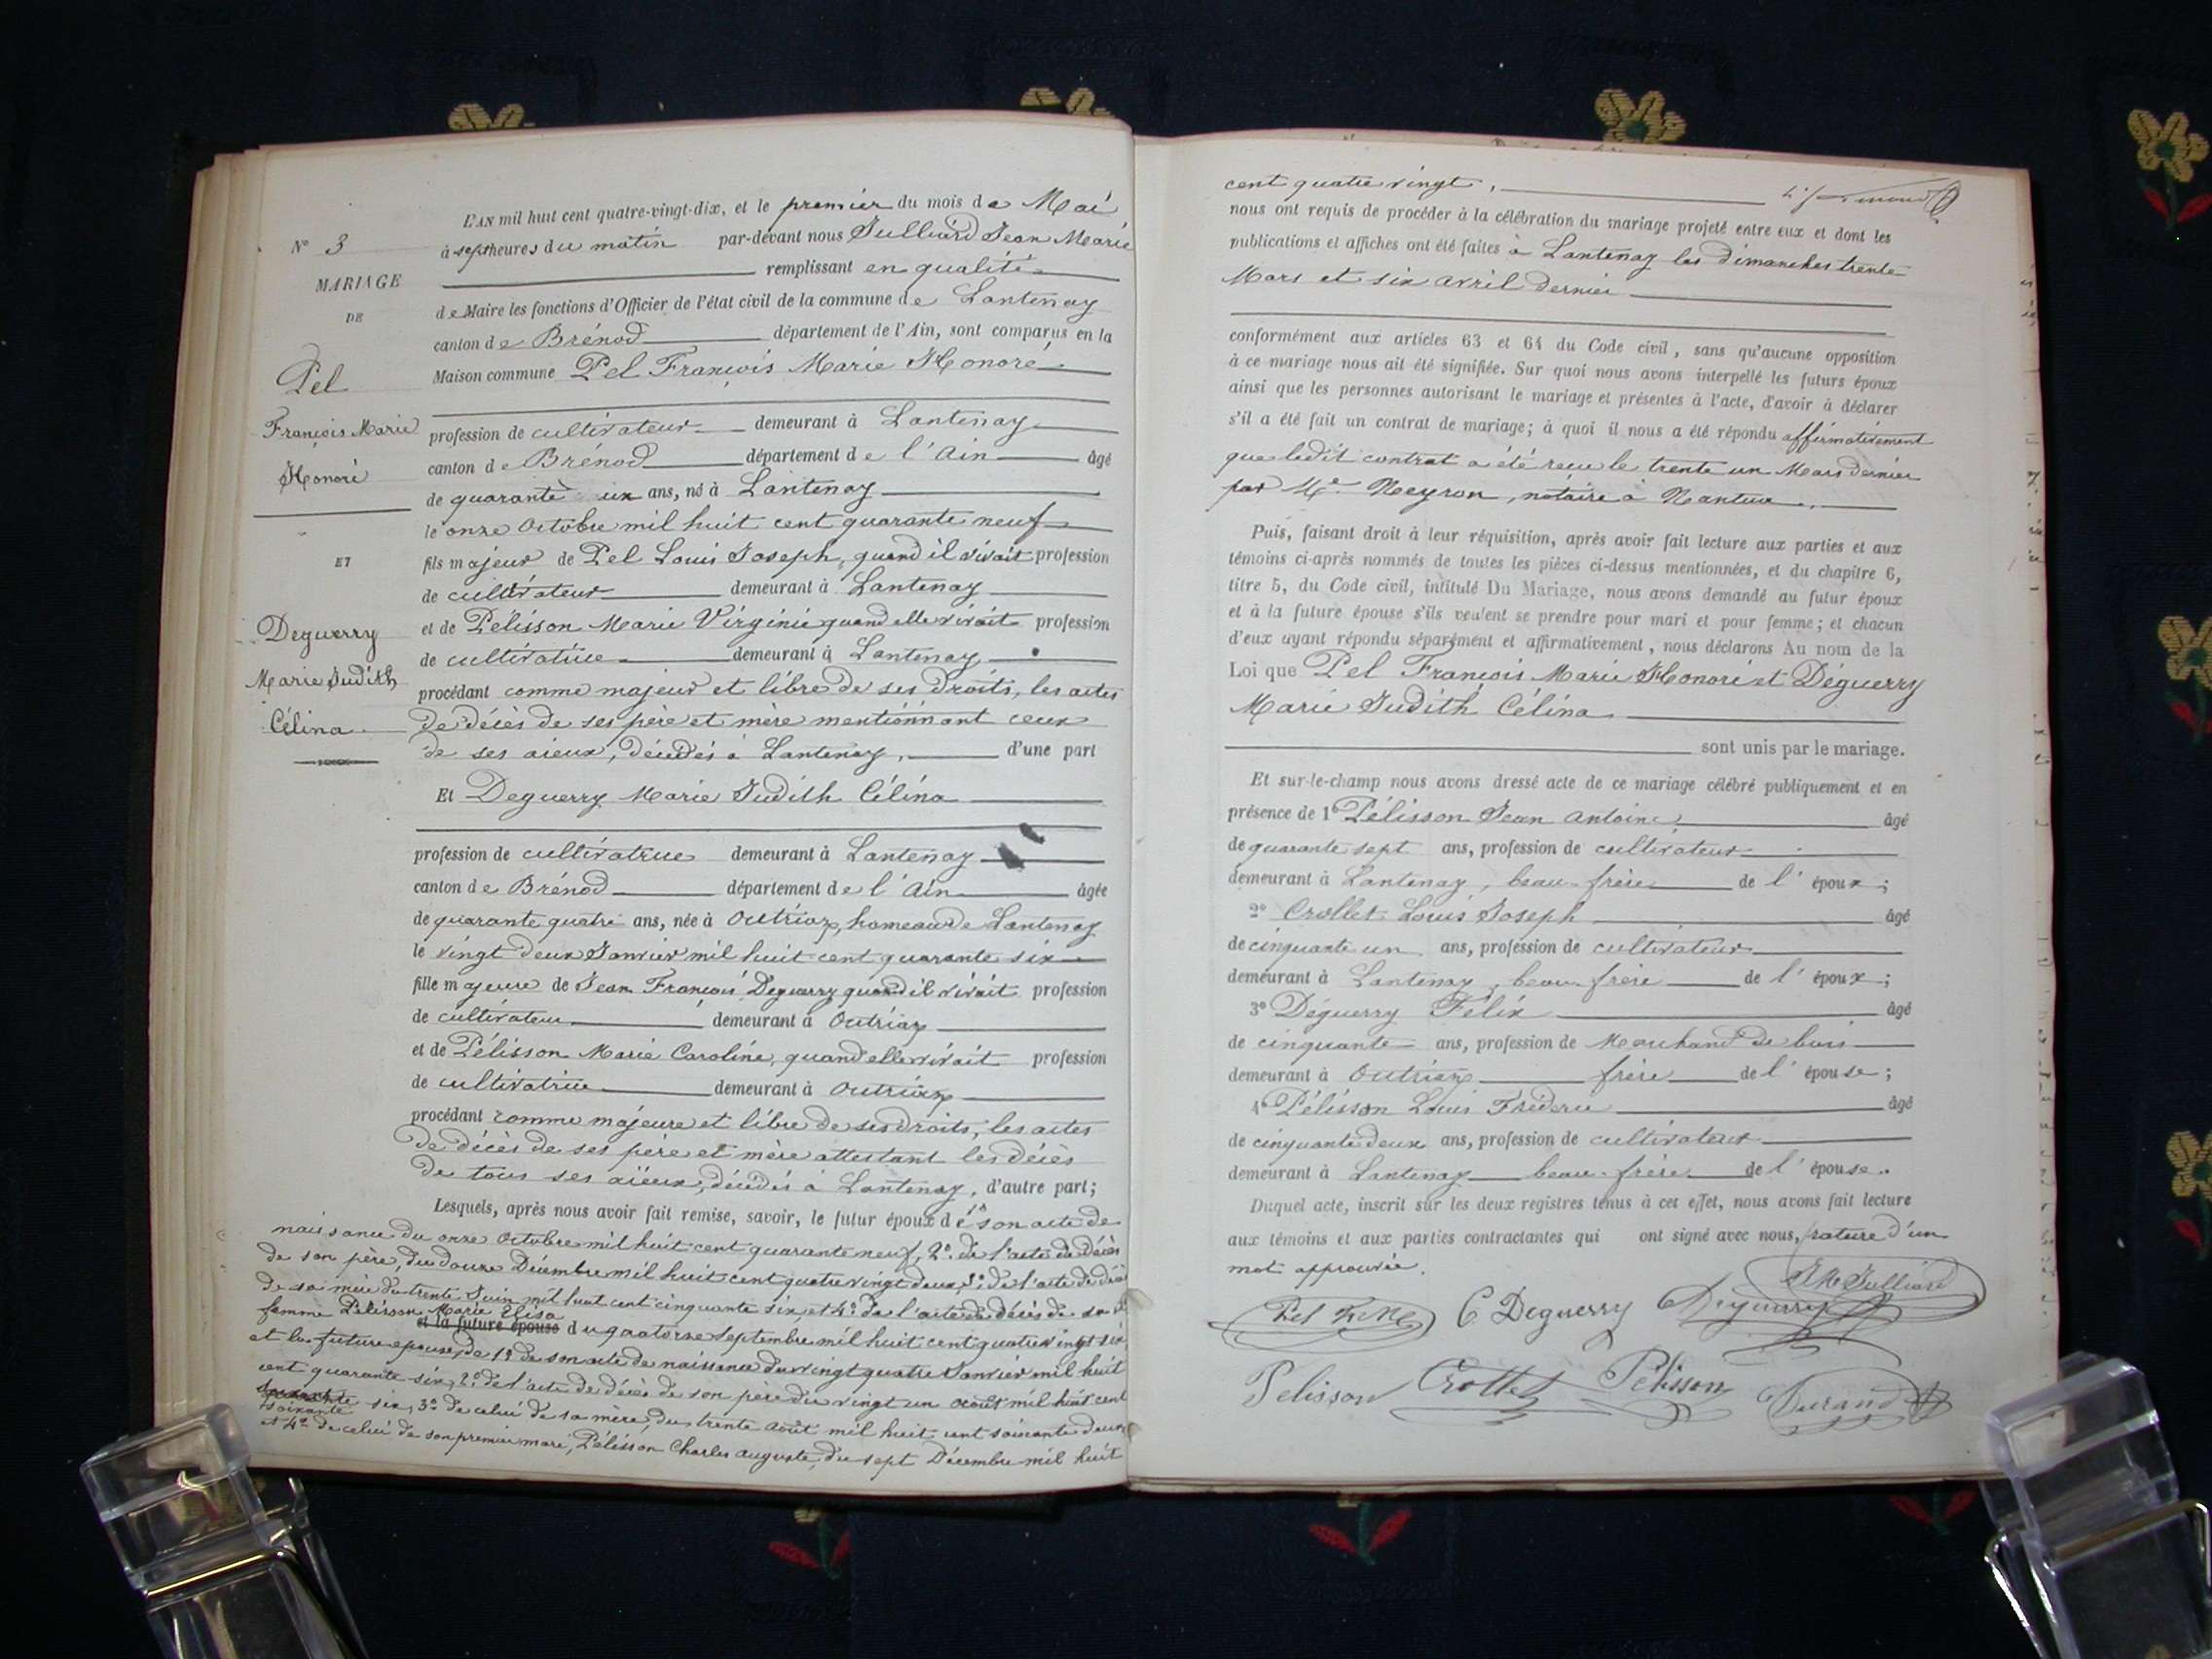 N° 3
MARIAGE
DE
Pel
François Marie
Honoré
ET
Deguerry
Marie Judith
Célina
L'AN mil huit cent quatre-vingt-dix, et le premier du mois de Mai
à sept heures du matin par-devant nous Julliard Jean Marie
remplissant en qualité
de Maire les fonctions d'Officier de l'état civil de la commune de Lantenay
canton de Brénod département de l'Ain, sont comparus en la
Maison commune Pel François Marie Honoré
profession de cultivateur demeurant à Lantenay
canton de Brénod département de l'Ain âgé
de quarante ans, né à Lantenay
le onze Octobre mil huit cent quarante neuf
fils majeur de Pel Louis Joseph, quand il vivait profession
de cultivateur demeurant à Lantenay
et de Pélisson Marie Virginie quand elle vivait profession
de cultivatrice demeurant à Lantenay
procédant comme majeur et libre de ses droits, les actes
de décès de ses père et mère mentionnant ceux
de ses aieux, décédés à Lantenay, d'une part
Et Deguerry Marie Judith Célina
profession de cultivatrice demeurant à Lantenay
canton de Brénod département de l'Ain âgée
de quarante quatre ans, née à Outriaz, hameau de Lantenay
le vingt deux Janvier mil huit cent quarante six
fille majeure de Jean François Deguerry quand il vivait profession
de cultivateur demeurant à Outriaz
et de Pélisson Marie Caroline, quand elle vivait profession
de cultivatrice demeurant à Outriaz
procédant comme majeure et libre de ses droits, les actes
de décès de ses père et mère attestant les décès
de tous ses aïeux, décédés à Lantenay, d'autre part;
Lesquels, après nous avoir fait remise, savoir, le futur époux de 1° son acte de
naissance du onze Octobre mil huit cent quarante neuf, 2° de l'acte de décès
de son père, du douze Décembre mil huit cent quatre vingt deux, 3° de l'acte de décès
de sa mère du trente Juin mil huit cent cinquante six, et 4° de l'acte de décès de sa
femme Pélisson Marie Elisa
et la future épouse du quatorze Septembre mil huit cent quatre vingt six
et la future epouse, de 1° de son acte de naissance du vingt quatre Janvier mil huit
cent quarante six, 2° de l'acte de décès de son père du vingt un Août mil huit cent
soixante six, 3° de celui de sa mère, du trente août mil huit cent soixante deux
et 4° de celui de son premier mari, Pélisson Charles Auguste, du sept Décembre mil huit
cent quatre vingt,
nous ont requis de procéder à la célébration du mariage projeté entre eux et dont les
publications et affiches ont été faites à Lantenay les dimanches trente
Mars et six avril dernier
conformément aux articles 63 et 64 du Code civil, sans qu'aucune opposition
à ce mariage nous ait été signifiée. Sur quoi nous avons interpellé les futurs époux
ainsi que les personnes autorisant le mariage et présentes à l'acte, d'avoir à déclarer
s'il a été fait un contrat de mariage; à quoi il nous a été répondu affirmativement
que ledit contrat a été reçu le trente un Mars dernier
par Me Neyron, notaire à Nantua.
Puis, faisant droit à leur réquisition, après avoir fait lecture aux parties et aux
témoins ci-après nommés de toutes les pièces ci-dessus mentionnées, et du chapitre 6,
titre 5, du Code civil, intitulé Du Mariage, nous avons demandé au futur époux
et à la future épouse s'ils veulent se prendre pour mari et pour femme; et chacun
d'eux ayant répondu séparément et affirmativement, nous déclarons Au nom de la
Loi que Pel François Marie Honoré et Déguerry
Marie Judith Célina
sont unis par le mariage.
Et sur-le-champ nous avons dressé acte de ce mariage célébré publiquement et en
présence de 1° Pélisson Jean Antoine âgé
de quarante sept ans, profession de cultivateur
demeurant à Lantenay, beau-frère de l'époux;
2° Crollet Louis Joseph âgé
de cinquante un ans, profession de cultivateur
demeurant à Lantenay, beau-frère de l'époux;
3° Déguerry Félix âgé
de cinquante ans, profession de Marchand de bois
demeurant à Outriaz frère de l'épouse;
4° Pélisson Louis Frédéric âgé
de cinquante deux ans, profession de cultivateur
demeurant à Lantenay beau-frère de l'épouse.
Duquel acte, inscrit sur les deux registres tenus à cet effet, nous avons fait lecture
aux témoins et aux parties contractantes qui ont signé avec nous, rature d'un
mot approuvée.
J M Julliard
Pel C Deguerry Deguerry
Pelisson Crollet Pélisson Durand